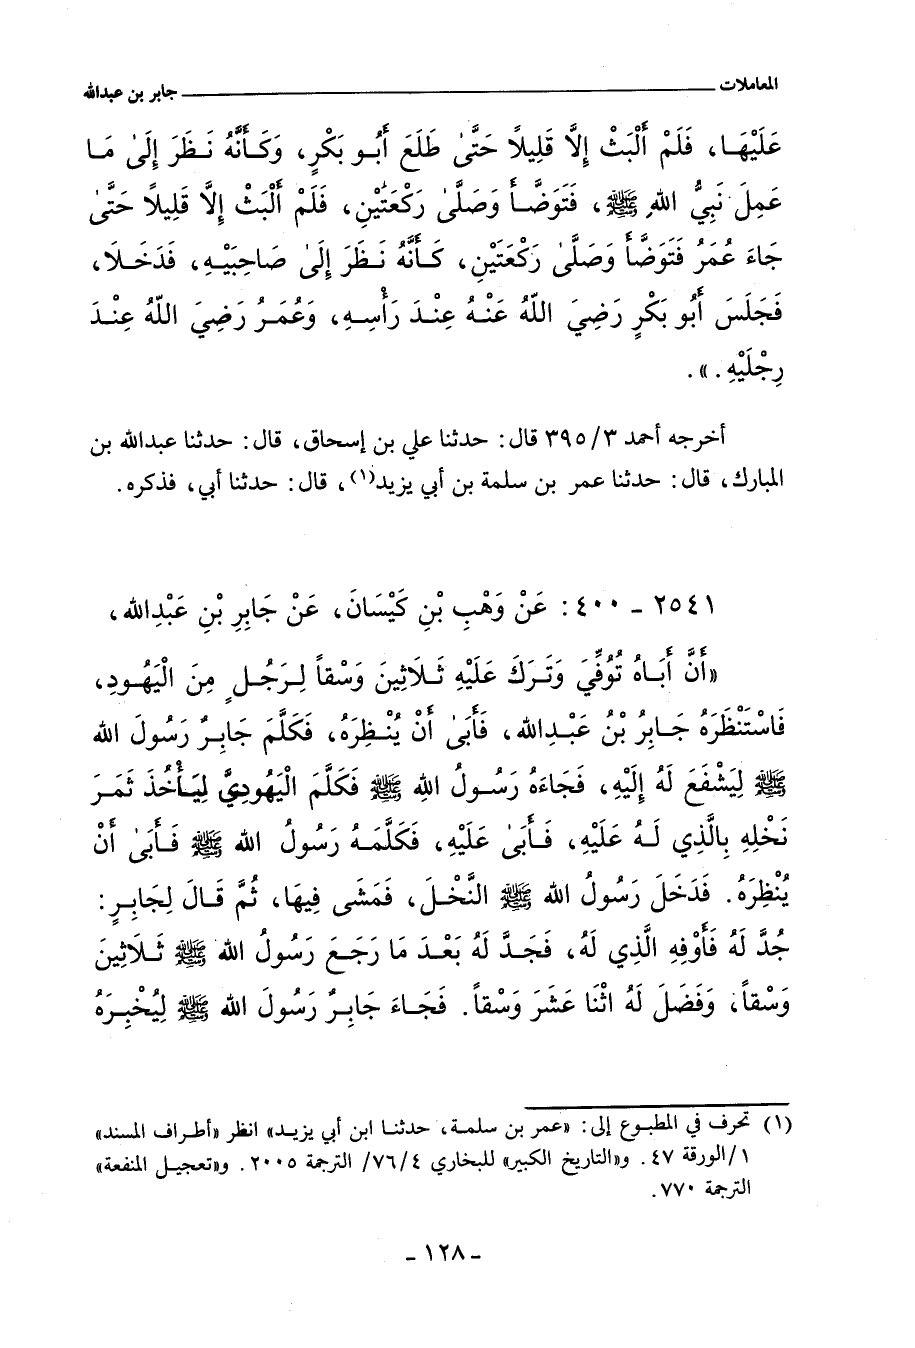 المعاملات ــــــــــــــــــــ جابر بن عبدالله
عَلَيْهَـا، فَلَمْ أَلْبَثْ إِلَّا قَلِيلًا حَتَّىٰ طَلَعَ أَبُـو بَكْرٍ، وَكَـأَنَّهُ نَـظَرَ إِلَىٰ مَـا
عَمِلَ نَبِيُّ اللهِ ﷺ، فَتَوَضَّـأَ وَصَلَّىٰ رَكْعَتَيْنِ، فَلَمْ أَلْبَثْ إِلَّا قَلِيلًا حَتَّىٰ
جَاءَ عُمَرُ فَتَوَضَّأَ وَصَلَّىٰ رَكْعَتَيْنِ، كَـأَنَّهُ نَـظَرَ إِلَىٰ صَاحِبَيْـهِ، فَدَخَـلَا،
فَجَلَسَ أَبُو بَكْرٍ رَضِيَ اللّٰهُ عَنْـهُ عِنْـدَ رَأْسِـهِ، وَعُمَـرُ رَضِيَ اللّٰهُ عِنْـدَ
رِجْلَيْهِ.».
أخرجه أحمد ٣/٣٩٥ قال: حدثنا علي بن إسحاق، قال: حدثنا عبدالله بن
المبارك، قال: حدثنا عمر بن سلمة بن أبي يزيد(١)، قال: حدثنا أبي، فذكره.
٢٥٤١ - ٤٠٠: عَنْ وَهْبِ بْنِ كَيْسَانَ، عَنْ جَابِرِ بْنِ عَبْدِالله،
«أَنَّ أَبَـاهُ تُوُفِّيَ وَتَرَكَ عَلَيْهِ ثَـلَاثِينَ وَسْقاً لِـرَجُـلٍ مِنَ الْيَهُـودِ،
فَاسْتَنْظَرَهُ جَـابِرُ بْنُ عَبْـدِالله، فَأَبَىٰ أَنْ يُنْـظِرَهُ، فَكَلَّمَ جَابِـرٌ رَسُولَ الله
ﷺ لِيَشْفَعَ لَهُ إِلَيْهِ، فَجَاءَهُ رَسُـولُ اللهِ ﷺ فَكَلَّمَ الْيَهُودِيَّ لِيَـأْخُذَ ثَمَـرَ
نَخْلِهِ بِالَّذِي لَـهُ عَلَيْهِ، فَـأَبَىٰ عَلَيْهِ، فَكَلَّمَـهُ رَسُولُ الله ﷺ فَـأَبَىٰ أَنْ
يُنْظِرَهُ. فَدَخَلَ رَسُولُ الله ﷺ النَّخْـلَ، فَمَشَى فِيهَا، ثُمَّ قَـالَ لِجَابِـرٍ:
جُدَّ لَهُ فَأَوْفِهِ الَّذِي لَهُ، فَجَـدَّ لَهُ بَعْـدَ مَا رَجَـعَ رَسُولُ الله ﷺ ثَـلَاثِينَ
وَسْقاً، وَفَضَلَ لَهُ اثْنَا عَشَرَ وَسْقاً. فَجَـاءَ جَابِـرٌ رَسُولَ الله ﷺ لِيُخْبِـرَهُ
(١) تحرف في المطبـوع إلى: «عمر بن سلمـة، حدثنـا ابن أبي يزيـد» انظر «أطـراف المسند»
١/الورقة ٤٧. و«التاريخ الكبير» للبخاري ٤/٧٦/ الترجمة ٢٠٠٥. و«تعجيل المنفعة»
الترجمة ٧٧٠.
- ١٢٨ -